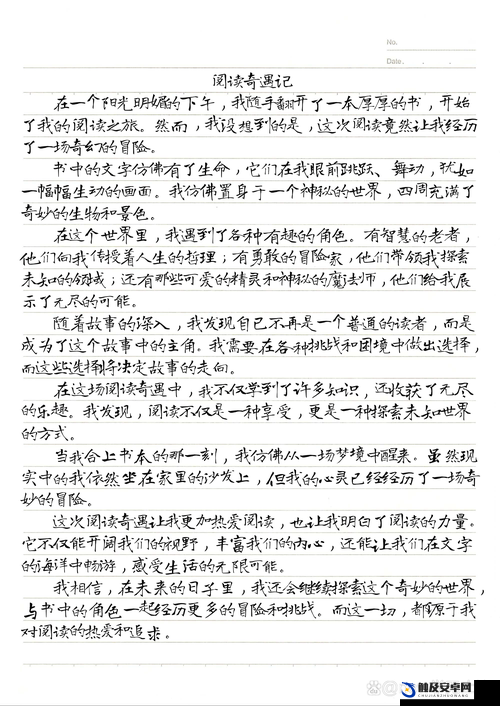 No.
Date. . .
阅读奇遇记
在一个阳光明媚的下午，我随手翻开了一本厚厚的书，开始
了我的阅读之旅。然而，我没想到的是，这次阅读竟然让我经历
了一场奇幻的冒险。
书中的文字仿佛有了生命，它们在我眼前跳跃、舞动，犹如
一幅幅生动的画面。我仿佛置身于一个神秘的世界，四周充满了
奇妙的生物和景色。
在这个世界里，我遇到了各种有趣的角色。有智慧的老者，
他们向我传授着人生的哲理；有勇敢的冒险家，他们带领我探索
未知的领域；还有那些可爱的精灵和神秘的魔法师，他们给我展
示了无尽的可能。
随着故事的深入，我发现自己不再是一个普通的读者，而是
成为了这个故事中的主角。我需要在各种挑战和困境中做出选择，
而这些选择将决定故事的走向。
在这场阅读奇遇中，我不仅学到了许多知识，还收获了无尽
的乐趣。我发现，阅读不仅是一种享受，更是一种探索未知世界
的方式。
当我合上书本的那一刻，我仿佛从一场梦境中醒来。虽然现
实中的我依然坐在家里的沙发上，但我的心灵已经经历了一场奇
妙的冒险。
这次阅读奇遇让我更加热爱阅读，也让我明白了阅读的力量。
它不仅能开阔我们的视野，丰富我们的内心，还能让我们在文字
的海洋中畅游，感受生活的无限可能。
我相信，在未来的日子里，我还会继续探索这个奇妙的世界，
与书中的角色一起经历更多的冒险和挑战。而这一切，都源于我
对阅读的热爱和追求。
触及安卓网